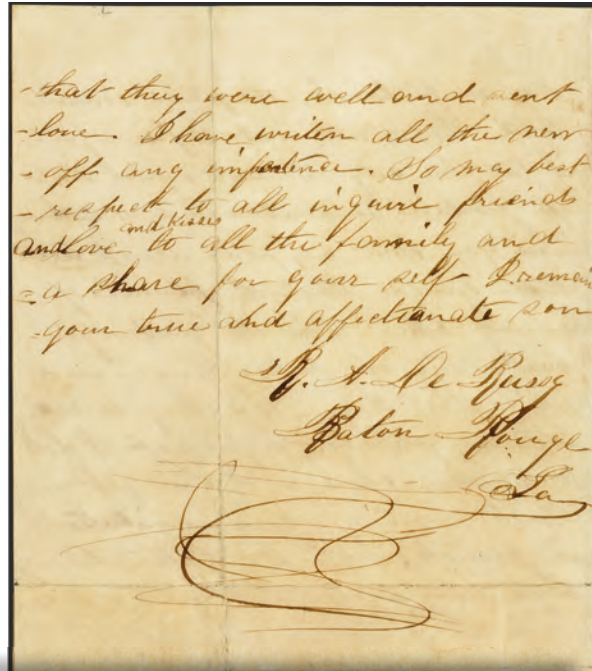 -that they were well and sent
-love. I have writen all the new
-off any importence. So may best
-respect to all inquire friends
and kisses
and love to all the family and
=a share for your self I remain
-your true and affectionate son
R. A. De Russy
Baton Rouge
La